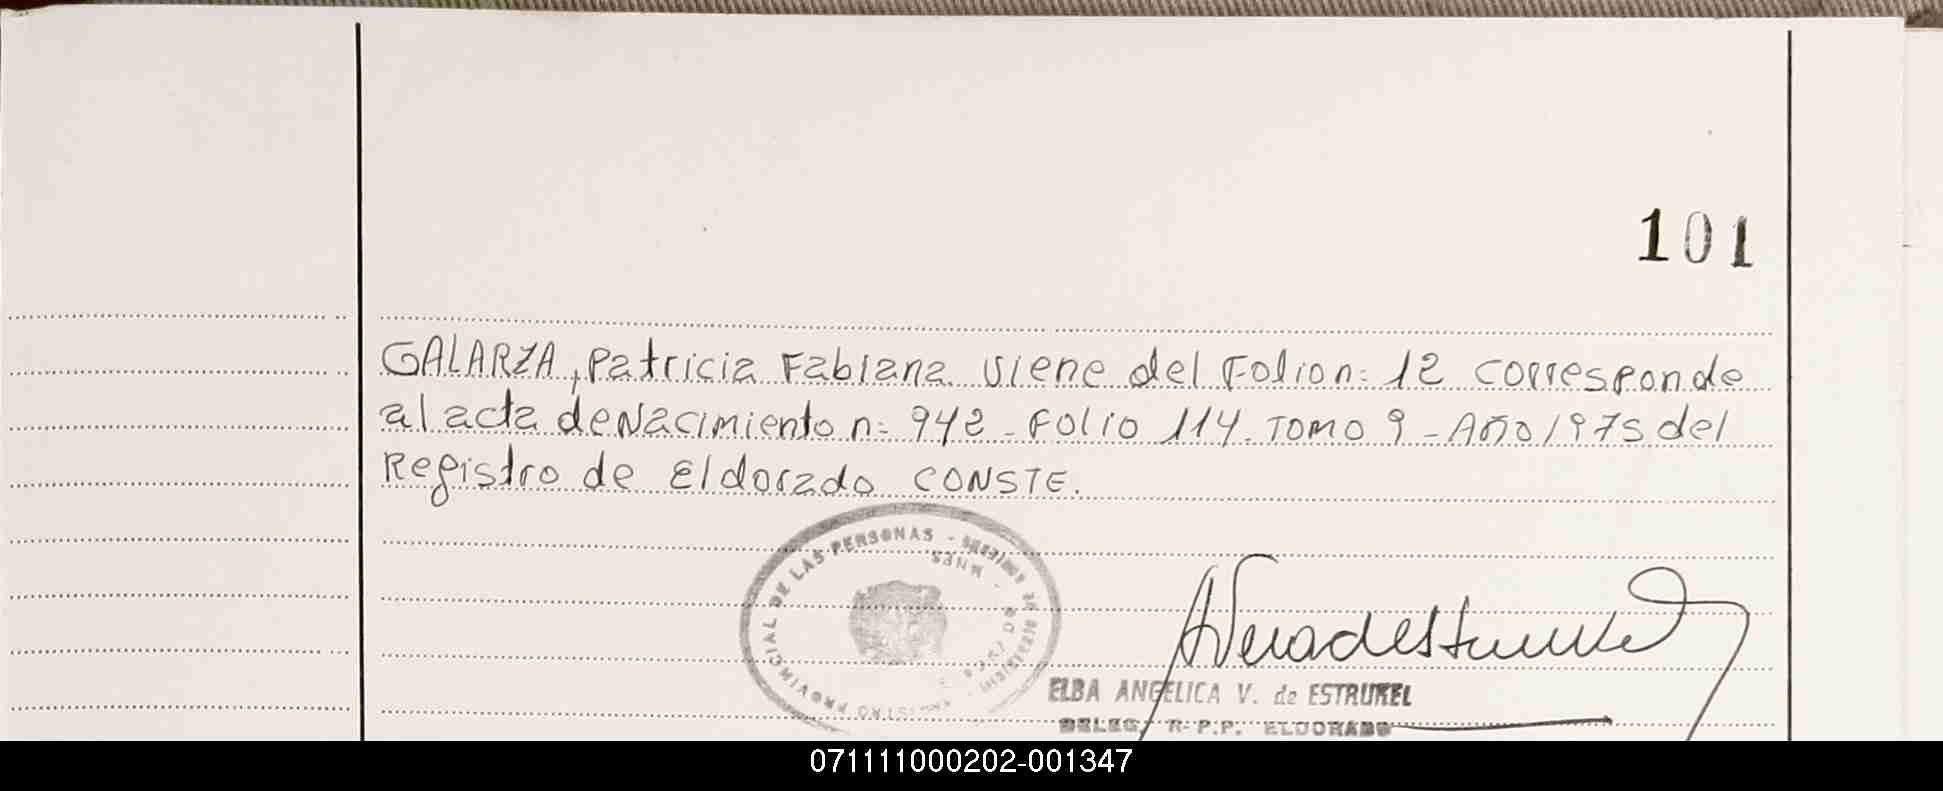 101
GALARZA, Patricia Fabiana viene del Folio n: 12 corresponde
al acta de Nacimiento n: 942 - Folio 114. Tomo 9 - Año 1975 del
Registro de Eldorado CONSTE.
REGISTRO PROVINCIAL DE LAS PERSONAS -
ELBA ANGELICA V. de ESTRUMEL
DELEG. R. P. P. ELDORADO
071111000202-001347